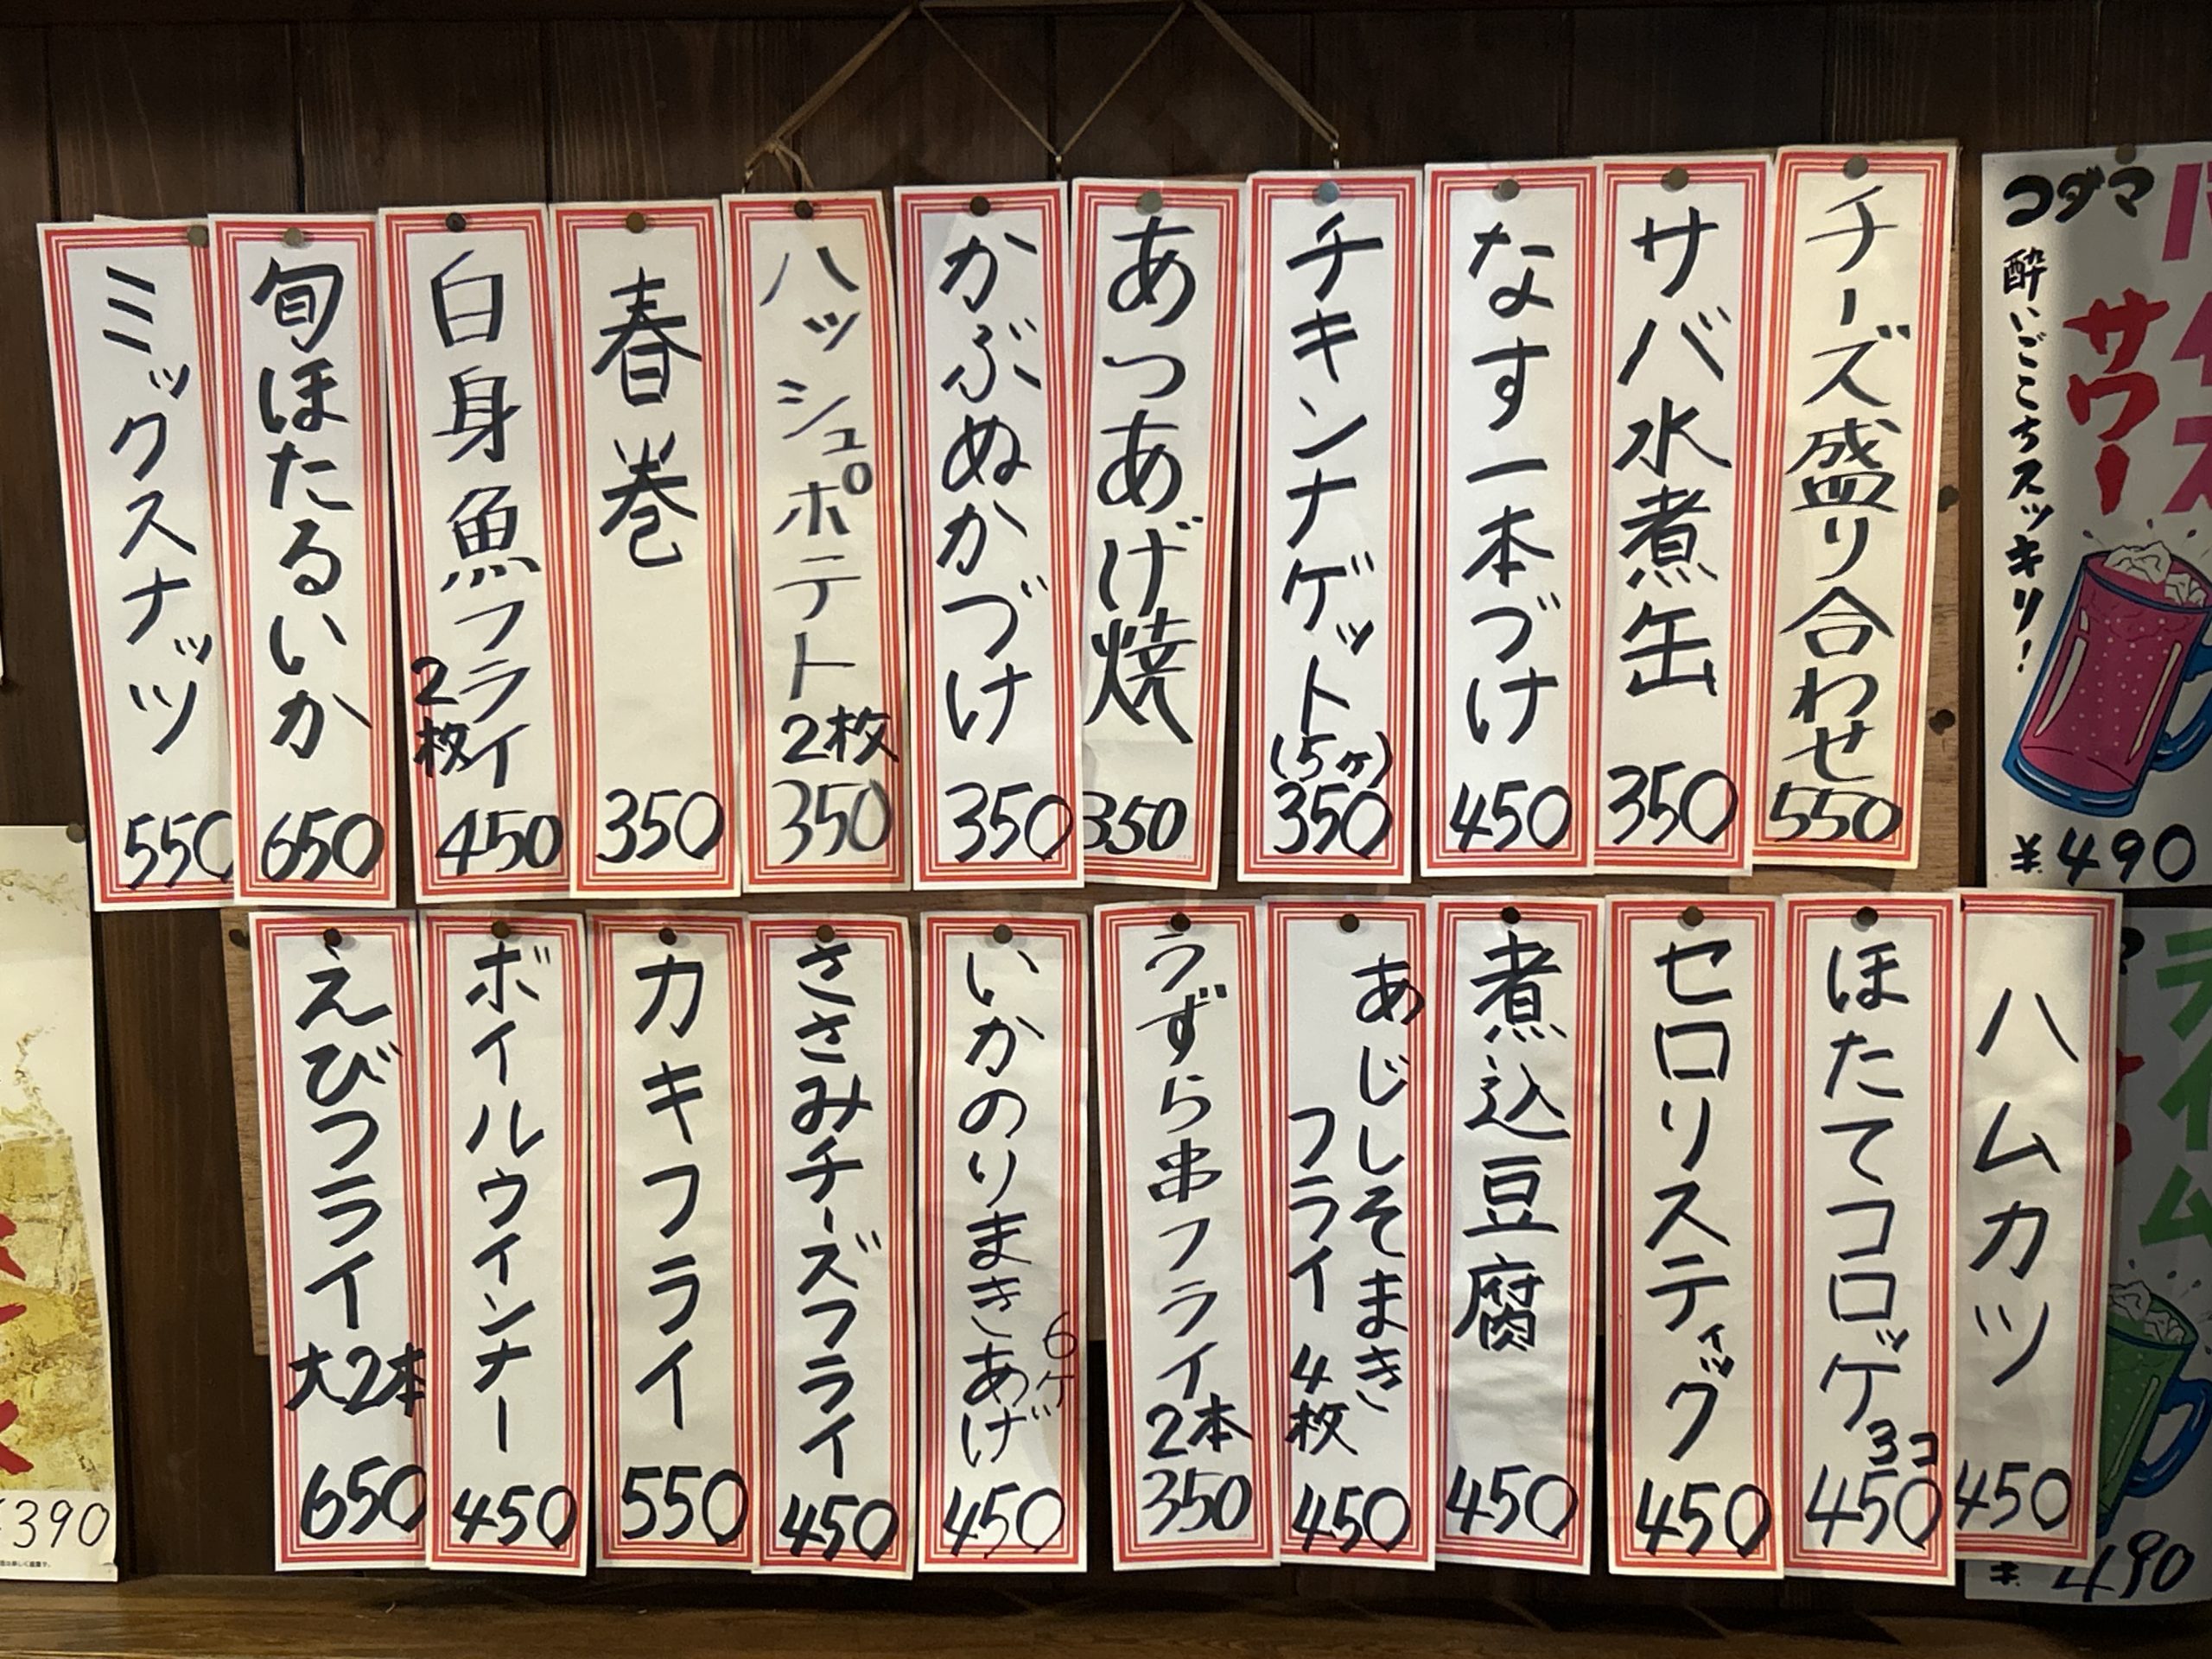 コダマ
サワー
酔いごこちスッキリ!
¥490
チーズ盛り合わせ
550
サバ水煮缶
350
なす一本づけ
450
チキンナゲット(5ヶ)
350
あつあげ焼
350
かぶぬかづけ
350
ハッシュポテト2枚
350
春巻
350
白身魚フライ
2枚
450
旬ほたるいか
650
ミックスナッツ
550
ハムカツ
450
ほたてコロッケ
3コ
450
セロリスティック
450
煮込豆腐
450
あじしそまき
フライ4枚
450
うずら串フライ2本
350
いかのりまきあげ
6ケ
450
ささみチーズフライ
450
カキフライ
550
ボイルウインナー
450
えびフライ大2本
650
¥490
390